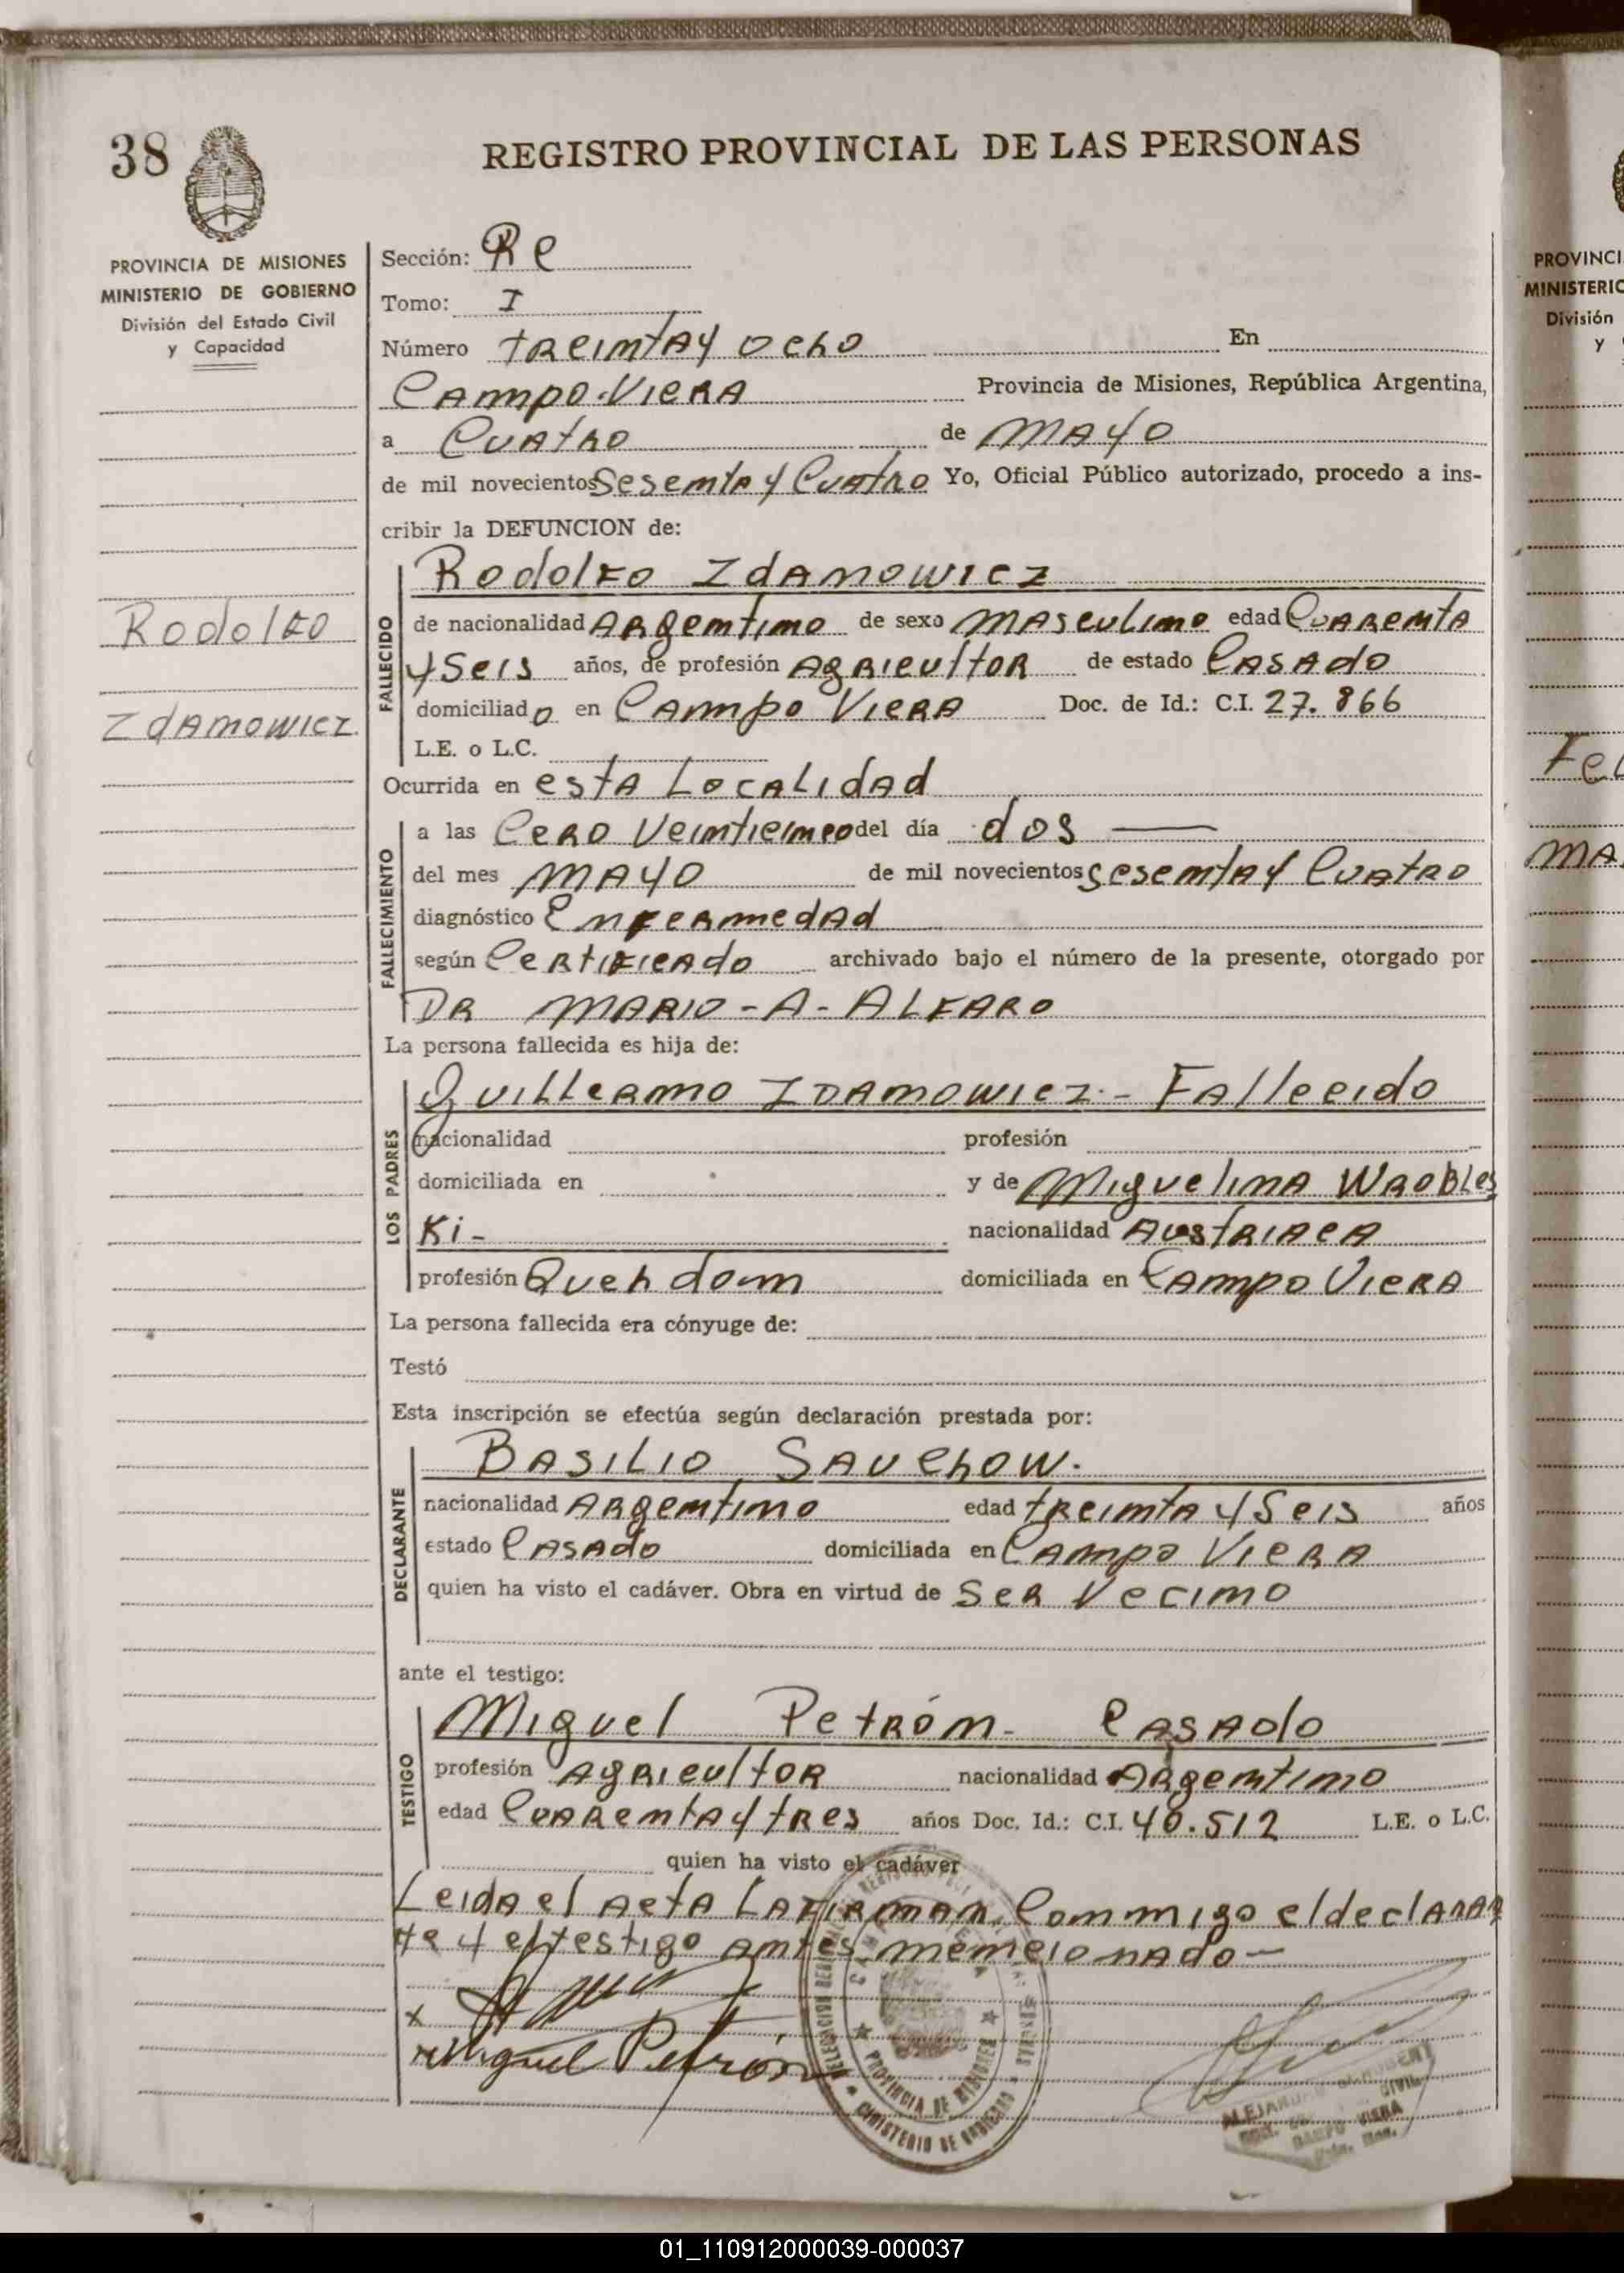 38
REGISTRO PROVINCIAL DE LAS PERSONAS
PROVINCIA DE MISIONES
MINISTERIO DE GOBIERNO
División del Estado Civil
y Capacidad
Rodolfo
Zdamowicz
Sección: Re
Tomo: I
Número treinta y ocho En
Campo Viera Provincia de Misiones, República Argentina,
a Cuatro de Mayo
de mil novecientos Sesenta y Cuatro Yo, Oficial Público autorizado, procedo a ins-
cribir la DEFUNCION de:
FALLECIDO
Rodolfo Zdamowicz
de nacionalidad Argentino de sexo Masculino edad Cuarenta
y Seis años, de profesión Agricultor de estado Casado
domiciliado en Campo Viera Doc. de Id.: C.I. 27.866
L.E. o L.C.
Ocurrida en esta Localidad
FALLECIMIENTO
a las Cero Veinticinco del día dos —
del mes Mayo de mil novecientos sesenta y Cuatro
diagnóstico Enfermedad
según Certificado archivado bajo el número de la presente, otorgado por
DR MARIO - A - ALFARO
La persona fallecida es hija de:
LOS PADRES
Guillermo Zdamowicz - Fallecido
nacionalidad profesión
domiciliada en y de Miguelina Wrobles
Ki - nacionalidad Austriaca
profesión Queh dom domiciliada en Campo Viera
La persona fallecida era cónyuge de:
Testó
Esta inscripción se efectúa según declaración prestada por:
DECLARANTE
Basilio Sauchow.
nacionalidad Argentino edad treinta y Seis años
estado Casado domiciliada en Campo Viera
quien ha visto el cadáver. Obra en virtud de Ser Vecino
ante el testigo:
TESTIGO
Miguel Petrón - Casado
profesión Agricultor nacionalidad Argentino
edad Cuarenta y tres años Doc. Id.: C.I. 40.512 L.E. o L.C.
quien ha visto el cadáver
Leida el acta La firman Conmigo el declaran
te y el testigo antes mencionado —
x
Miguel Petrón
PROVINCIA DE MISIONES
MINISTERIO DE GOBIERNO
CAMPO VIERA
PROVINCI
MINISTERIO
División
y
Fel
MA
01_110912000039-000037